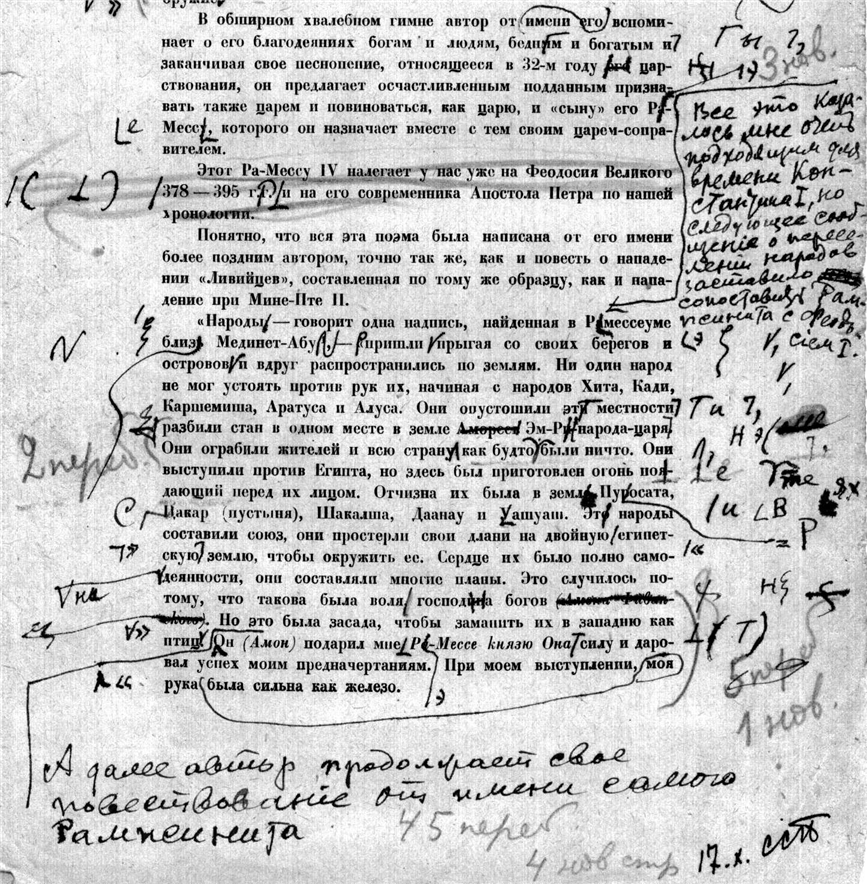 оружие.
В обширном хвалебном гимне автор от имени его вспоми-
нает о его благодеяниях богам и людям, бедным и богатым и
заканчивая свое песнопение, относящееся в 32-м году его цар-
ствования, он предлагает осчастливленным подданным призна-
вать также царем и повиноваться, как царю, и «сыну» его Ра-
Мессу, которого он назначает вместе с тем своим царем-сопра-
вителем.
Этот Ра-Мессу IV налегает у нас уже на Феодосия Великого
378—395 г.г. и на его современника Апостола Петра по нашей
хронологии.
Понятно, что вся эта поэма была написана от его имени
более поздним автором, точно так же, как и повесть о нападе-
нии «Ливийцев», составленная по тому же образцу, как и напа-
дение при Мине-Пте II.
«Народы — говорит одна надпись, найденная в Рамессеуме
близ Мединет-Абу, — пришли прыгая со своих берегов и
островов и вдруг распространились по землям. Ни один народ
не мог устоять против рук их, начиная с народов Хита, Кади,
Каршемиша, Аратуса и Алуса. Они опустошили эти местности
разбили стан в одном месте в земле Эм-Ри народа-царя
Они ограбили жителей и всю страну как будто были ничто. Они
выступили против Египта, но здесь был приготовлен огонь поя-
дающий перед их лицом. Отчизна их была в земле Пуросата,
Цакар (пустыня), Шакалша, Даанау и Уашуаш. Эти народы
составили союз, они простерли свои длани на двойную египет-
скую землю, чтобы окружить ее. Сердце их было полно само-
деянности, они составляли многие планы. Это случилось по-
тому, что такова была воля господина богов
Но это была засада, чтобы заманить их в западню как
птиц. Он (Амон) подарил мне Ра-Мессе князю Она силу и даро-
вал успех моим предначертаниям. При моем выступлении, моя
рука была сильна как железо.
3 нов.
Все это каза-
лось мне очень
подходящим для
времени Кон-
стантина I, но
следующее сооб-
щение о пересе-
лении народов
заставило
сопоставить Рам-
псинита с
2 переб
5 переб
1 нов.
А далее автор продолжает свое
повествование от имени самого
Рампсинита
45 переб.
4 нов стр
17.X.